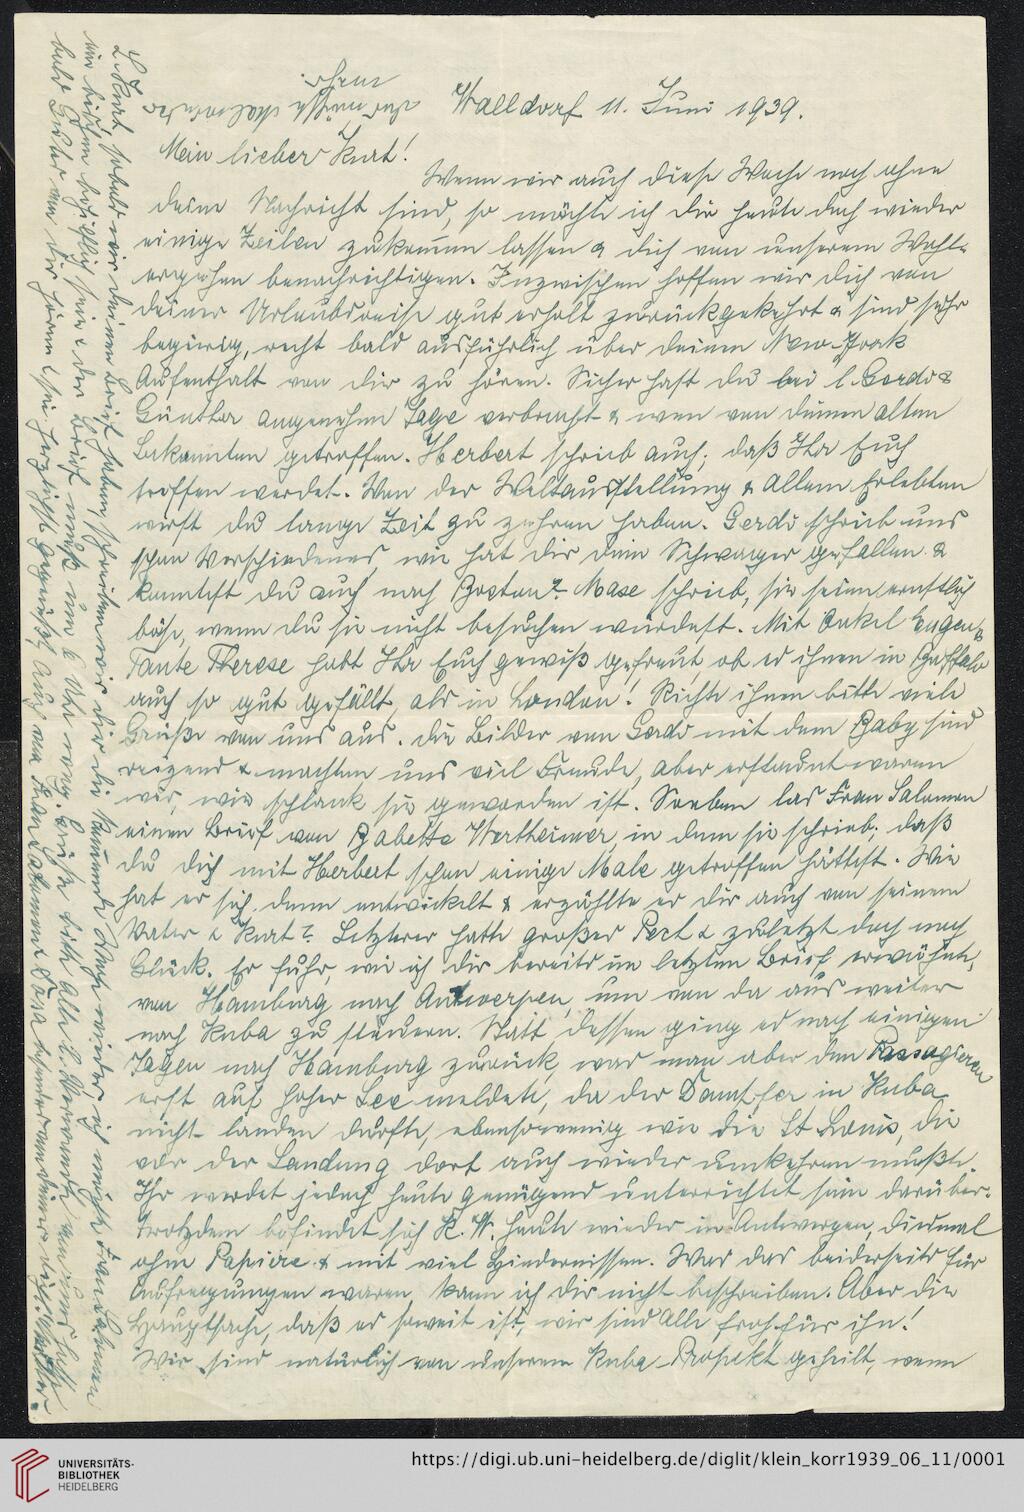 Walldorf 11. Juni 1939.
Mein lieber Kurt!
Wenn wir auch diese Woche noch ohne
deine Nachricht sind, so möchte ich dir heute doch wieder
einige Zeilen zukommen lassen & dich von unserem Wohl-
ergehen benachrichtigen. Inzwischen hoffen wir dich von
deiner Urlaubsreise gut erholt zurückgekehrt & sind sehr
begierig, recht bald ausführlich über deinen New-York
Aufenthalt von dir zu hören. Sicher hast du bei l. Gerdi &
Günther angenehme Tage verbracht & wen von deinen alten
Bekannten getroffen. Herbert schrieb auch, daß Ihr Euch
treffen werdet. Von der Weltausstellung & allem Erlebten
wirst du lange Zeit zu zehren haben. Gerdi schrieb uns
schon Verschiedenes, wie hat dir dein Schwager gefallen &
konntest du auch nach Boston? Mase schrieb, sie seien ernstlich
böse, wenn du sie nicht besuchen würdest. Mit Onkel Eugen &
Tante Therese habt Ihr Euch gewiß gefreut, ob es ihnen in Buffalo
auch so gut gefällt, als in London! Richte ihnen bitte viele
Grüße von uns aus. Die Bilder von Gerdi mit dem Baby sind
reizend & machten uns viel Freude, aber erstaunt waren
wir, wie schlank sie geworden ist. Soeben las Frau Salomon
einen Brief von Babette Wertheimer, in dem sie schrieb, daß
du dich mit Herbert schon einige Male getroffen hättest. Wie
hat er sich denn entwickelt & erzählte er dir auch von seinem
Vater & Kurt? Letzterer hatte großes Pech & zuletzt doch noch
Glück. Er fuhr, wie ich dir bereits im letzten Brief erwähnte,
von Hamburg nach Antwerpen, um von da aus weiter
nach Kuba zu steuern. Statt dessen ging es nach einigen
Tagen nach Hamburg zurück, was man aber den Passagieren
erst auf hoher See meldete, da der Dampfer in Kuba
nicht landen durfte, ebensowenig wie die St. Louis, die
vor der Landung dort auch wieder umkehren mußte.
Ihr werdet jedoch heute genügend unterrichtet sein darüber.
Trotzdem befindet sich K. W. heute wieder in Antwerpen, diesmal
ohne Papiere & mit viel Hindernissen. Was das beiderseits für
Aufregungen waren, kann ich dir nicht beschreiben. Aber die
Hauptsache, daß es soweit ist, wir sind alle froh für ihn!
Wir sind natürlich von unserem Kuba-Projekt geheilt, wenn
L. Kurt, sobald wir deinen Brief haben, schreiben wir dir die kommende Woche wieder, ich möchte Frau Salomon
ein bißchen behilflich sein & der Brief muß um 6 Uhr weg. Grüße bitte alle l. Verwandte von uns & laß
bald Gutes von dir hören & sei herzlichst gegrüßt, auch von Frau Salomon
mehr.
https://digi.ub.uni-heidelberg.de/diglit/klein_korr1939_06_11/0001
UNIVERSITÄTS-
BIBLIOTHEK
HEIDELBERG